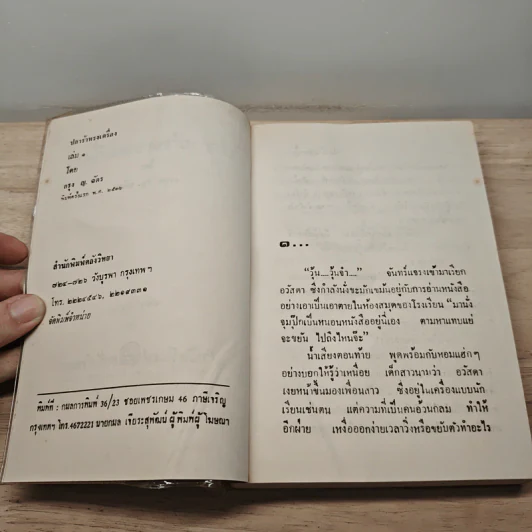 ปลารัาพรงเครื่อง
เล่ม ๑
โดย
ตรุง ญ. ฉัตร
พิมพ์ครั้งแรก พ.ศ. ๒๕๒๖
สำนักพิมพ์คลังวิทยา
๘๒๔-๘๒๖ วังบูรพา กรุงเทพฯ
โทร. ๒๒๔๕๔๖, ๒๒๑๙๓๓๑
จัดพิมพ์จำหน่าย
พิมพ์ที่ : กมลการพิมพ์ 36/23 ซอยเพชรเกษม 46 ภาษีเจริญ
กรุงเทพฯ โทร.4672221 นายกมล เจียระสุพัฒน์ ผู้พิมพ์ผู้โฆษณา
๑...
“วุ้น...วุ้นจ๋า...” จันทร์แจรงเข้ามาเรียก
อวัสดา ซึ่งกำลังนั่งขะมักเขม้นอยู่กับการอ่านหนังสือ
อย่างเอาเป็นเอาตายในห้องสมุดของโรงเรียน “มานั่ง
จุมปุ๊กเป็นหนอนหนังสืออยู่นี่เอง ตามหาแทบแย่
จะขยัน ไปถึงไหนจ๊ะ”
น้ำเสียงตอนท้าย พูดพร้อมกับหอบแฮ่กๆ
อย่างบอกให้รู้ว่าเหนื่อย เด็กสาวนามว่า อวัสดา
เงยหน้าขึ้นมองเพื่อนสาว ซึ่งอยู่ในเครื่องแบบนัก
เรียนเช่นตน แต่ความที่เป็นคนอ้วนกลม ทำให้
อีกฝ่าย เหงื่อออกง่ายเวลาวิ่งหรือขยับตัวทำอะไร